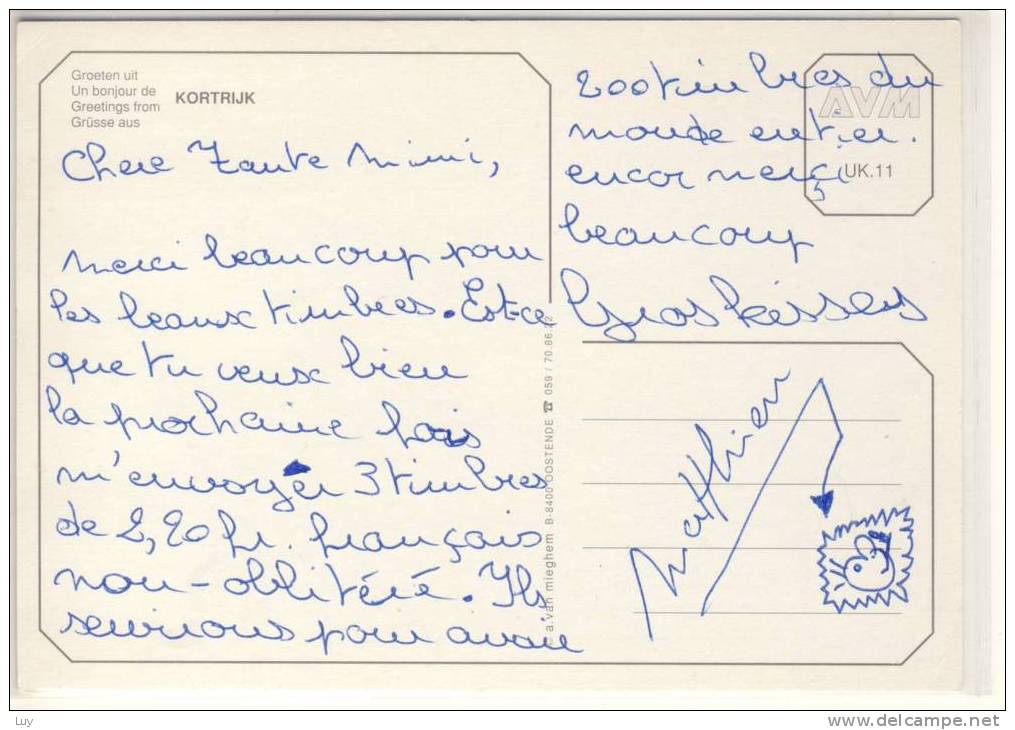 Groeten uit
Un bonjour de
Greetings from
Grüsse aus
KORTRIJK
Chere Tante Mimi,
Merci beaucoup pour
les beaux timbres. Est-ce
que tu veux bien
la prochaine fois
m'envoyer 3 timbres
de 2,20 fr. français
non-oblitéré. Ils
serviront pour avoir
200 timbres du
monde entier.
encor merçi
beaucoup
Gros
Matthieu
AVM
UK.11
a. van mieghem B-8400 OOSTENDE ☎ 059 / 70.86.22
Luy
http://www.delcampe.net